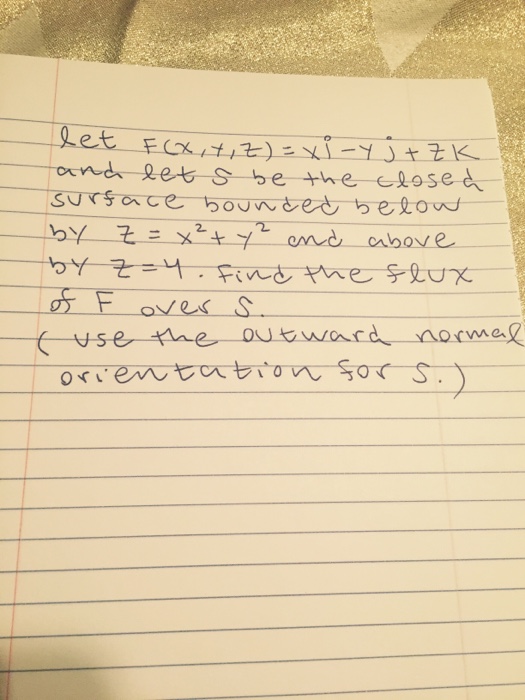 let F(x,y,z) = xi - yj + zk
and let S be the closed
surface bounded below
by z = x² + y² and above
by z = 4. find the flux
of F over S.
( use the outward normal
orientation for S.)